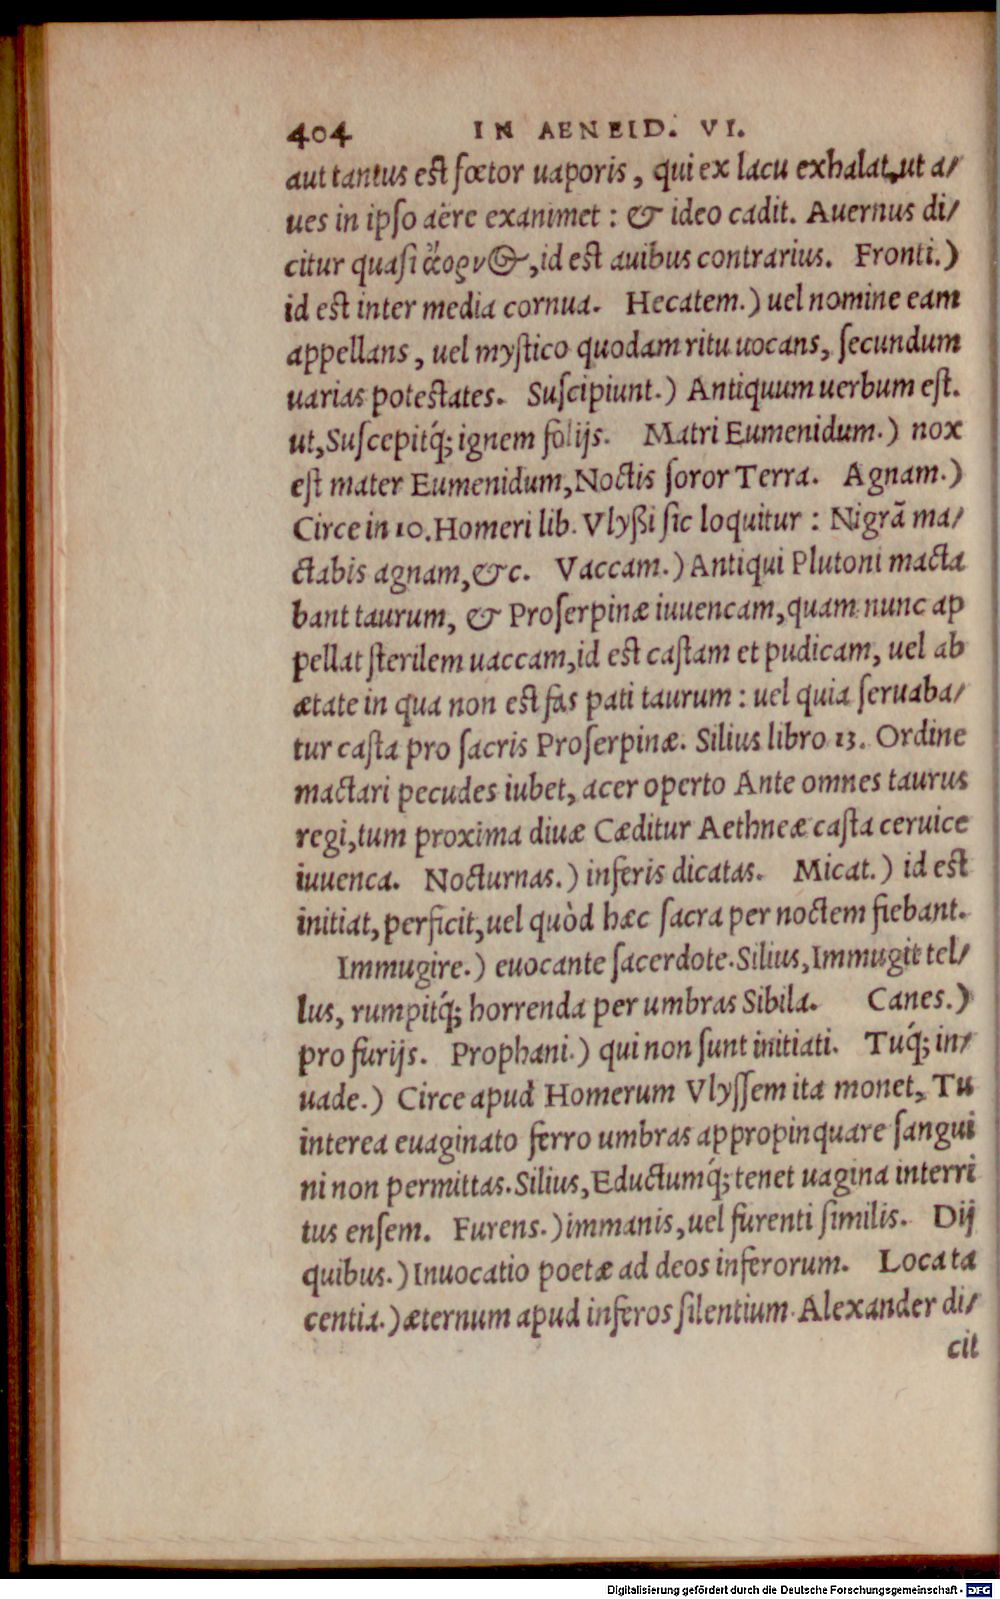 404 IN AENEID. VI.
aut tantus est fœtor uaporis, qui ex lacu exhalat, ut a/
ues in ipso aëre exanimet: & ideo cadit. Auernus di/
citur quasi ἄορνος, id est auibus contrarius. Fronti.)
id est inter media cornua. Hecatem.) uel nomine eam
appellans, uel mystico quodam ritu uocans, secundum
uarias potestates. Suscipiunt.) Antiquum uerbum est.
ut, Suscepitq́; ignem folijs. Matri Eumenidum.) nox
est mater Eumenidum, Noctis soror Terra. Agnam.)
Circe in 10. Homeri lib. Vlyßi sic loquitur: Nigrã ma/
ctabis agnam, &c. Vaccam.) Antiqui Plutoni macta
bant taurum, & Proserpinæ iuuencam, quam nunc ap
pellat sterilem uaccam, id est castam et pudicam, uel ab
ætate in qua non est fas pati taurum: uel quia seruaba/
tur casta pro sacris Proserpinæ. Silius libro 13. Ordine
mactari pecudes iubet, acer operto Ante omnes taurus
regi, tum proxima diuæ Cæditur Aethneæ casta ceruice
iuuenca. Nocturnas.) inferis dicatas. Micat.) id est
initiat, perficit, uel quòd hæc sacra per noctem fiebant.
Immugire.) euocante sacerdote. Silius, Immugit tel/
lus, rumpitq́; horrenda per umbras Sibila. Canes.)
pro furijs. Prophani.) qui non sunt initiati. Tuq́; in/
uade.) Circe apud Homerum Vlyssem ita monet, Tu
interea euaginato ferro umbras appropinquare sangui
ni non permittas. Silius, Eductumq́; tenet uagina interri
tus ensem. Furens.) immanis, uel furenti similis. Dij
quibus.) Inuocatio poetæ ad deos inferorum. Loca ta
centia.) æternum apud inferos silentium. Alexander di/
cit
Digitalisierung gefördert durch die Deutsche Forschungsgemeinschaft - DFG